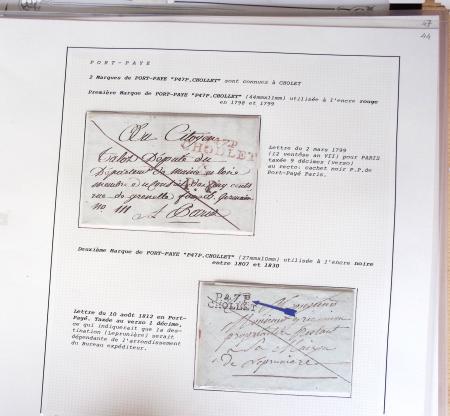 47
44
PORT-PAYE
2 Marques de PORT-PAYE "P47P.CHOLLET" sont connues à CHOLET
Première Marque de PORT-PAYE "P47P.CHOLLET" (44mmx11mm) utilisée à l'encre rouge
en 1798 et 1799
Au Citoyen
P47P
CHOLLET
Député du
rue de grenelle
no. 111
à Paris
Lettre du 2 mars 1799
(12 ventôse an VII) pour PARIS
taxée 9 décimes (verso)
au recto: cachet noir P.P.de
Port-Payé Paris.
Deuxième Marque de PORT-PAYE "P47P.CHOLLET" (27mmx10mm) utilisée à l'encre noire
entre 1807 et 1830
Lettre du 10 août 1812 en Port-
Payé. Taxée au verso 1 décime,
ce qui indiquerait que la des-
tination (Lepronière) serait
dépendante de l'arrondissement
du Bureau expéditeur.
P47P
CHOLLET
Monsieur